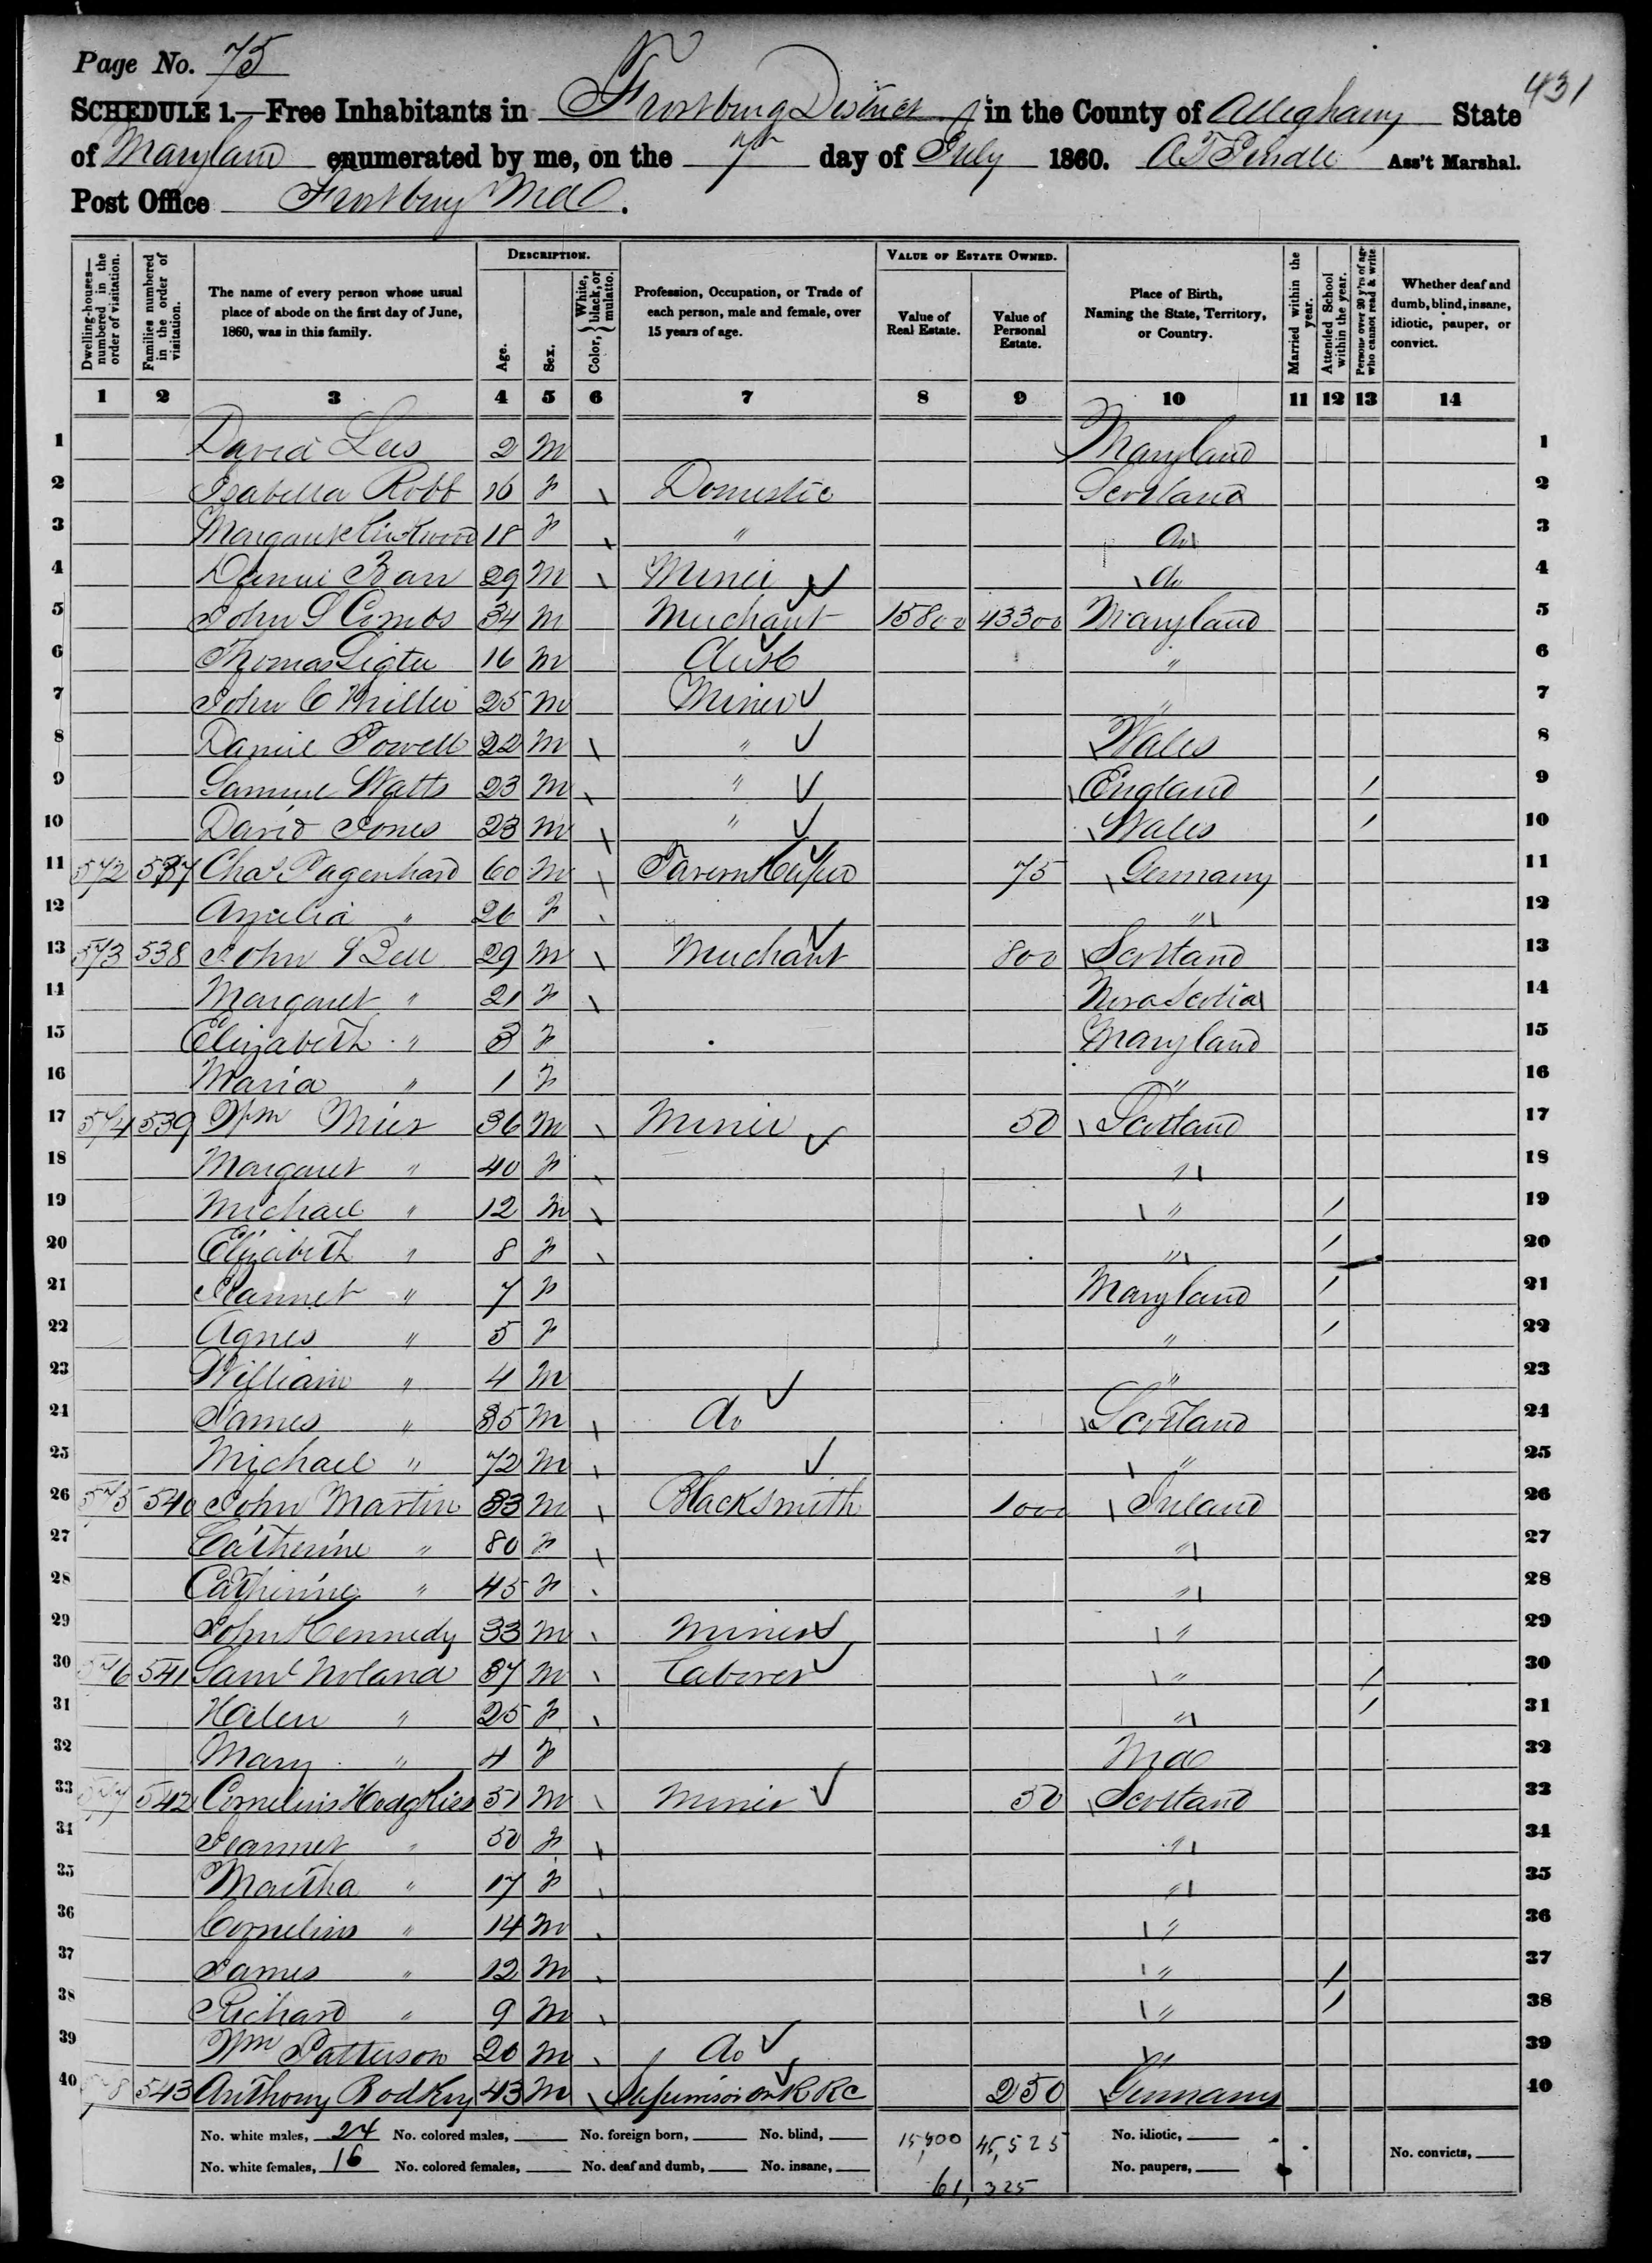 Page No. 75
431
SCHEDULE 1.—Free Inhabitants in Frostburg District in the County of Alleghany State
of Maryland enumerated by me, on the 7th day of July 1860. Ass't Marshal.
Post Office Frostburg Md.
DESCRIPTION. VALUE OF ESTATE OWNED.
Dwelling-houses—numbered in the order of visitation. Families numbered in the order of visitation. The name of every person whose usual place of abode on the first day of June, 1860, was in this family. Age. Sex. Color, { White, black, or mulatto. Profession, Occupation, or Trade of each person, male and female, over 15 years of age. Value of Real Estate. Value of Personal Estate. Place of Birth, Naming the State, Territory, or Country. Married within the year. Attended School within the year. Persons over 20 y'rs of age who cannot read & write Whether deaf and dumb, blind, insane, idiotic, pauper, or convict.
1 2 3 4 5 6 7 8 9 10 11 12 13 14
1 David Lees 2 M Maryland 1
2 Isabella Robb 16 F \ Domestic Scotland 2
3 Margaret Kirkwood 18 F \ " do 3
4 Barr 29 M \ Miner do 4
5 John S Combs 34 M Merchant 15800 43300 Maryland 5
6 Thomas 16 M Clerk " 6
7 John C Miller 25 M Miner " 7
8 Daniel Powell 22 M \ " Wales 8
9 Samuel Watts 23 M \ " England / 9
10 David Jones 23 M \ " Wales / 10
11 572 537 Chas Pagenhard 60 M \ Tavern Keeper 75 Germany 11
12 Amelia " 26 F \ " 12
13 573 538 John Bell 29 M \ Merchant 800 Scotland 13
14 Margaret " 21 F \ Nova Scotia 14
15 Elizabeth " 3 F Maryland 15
16 Maria " 1 F " 16
17 574 539 Wm 36 M \ Miner 50 Scotland 17
18 Margaret " 40 F \ " 18
19 Michael " 12 M \ " / 19
20 Elizabeth " 8 F \ " / 20
21 Jeannet " 7 F Maryland / 21
22 Agnes " 5 F " / 22
23 William " 4 M " 23
24 James " 35 M \ do Scotland 24
25 Michael " 72 M \ " 25
26 575 540 John Martin 33 M \ Blacksmith 1000 Ireland 26
27 Catherine " 80 F \ " 27
28 Catherine " 45 F \ " 28
29 John Kennedy 33 M \ Miner " 29
30 576 541 Saml Noland 37 M \ Laborer " / 30
31 Helen " 25 F \ " / 31
32 Mary " 4 F Md 32
33 577 542 Cornelius Hodgkiss 51 M \ Miner 50 Scotland 33
34 Jeannet " 50 F \ " 34
35 Martha " 17 F \ " 35
36 Cornelius " 14 M \ " 36
37 James " 12 M \ " / 37
38 Richard " 9 M \ " / 38
39 Wm Patterson 20 M \ do " 39
40 578 543 Anthony 43 M \ Supervisor on R R C 250 Germany 40
No. white males, 24 No. colored males, No. foreign born, No. blind, 15,800 45,525 No. idiotic, No. convicts,
No. white females, 16 No. colored females, No. deaf and dumb, No. insane, No. paupers,
61,325